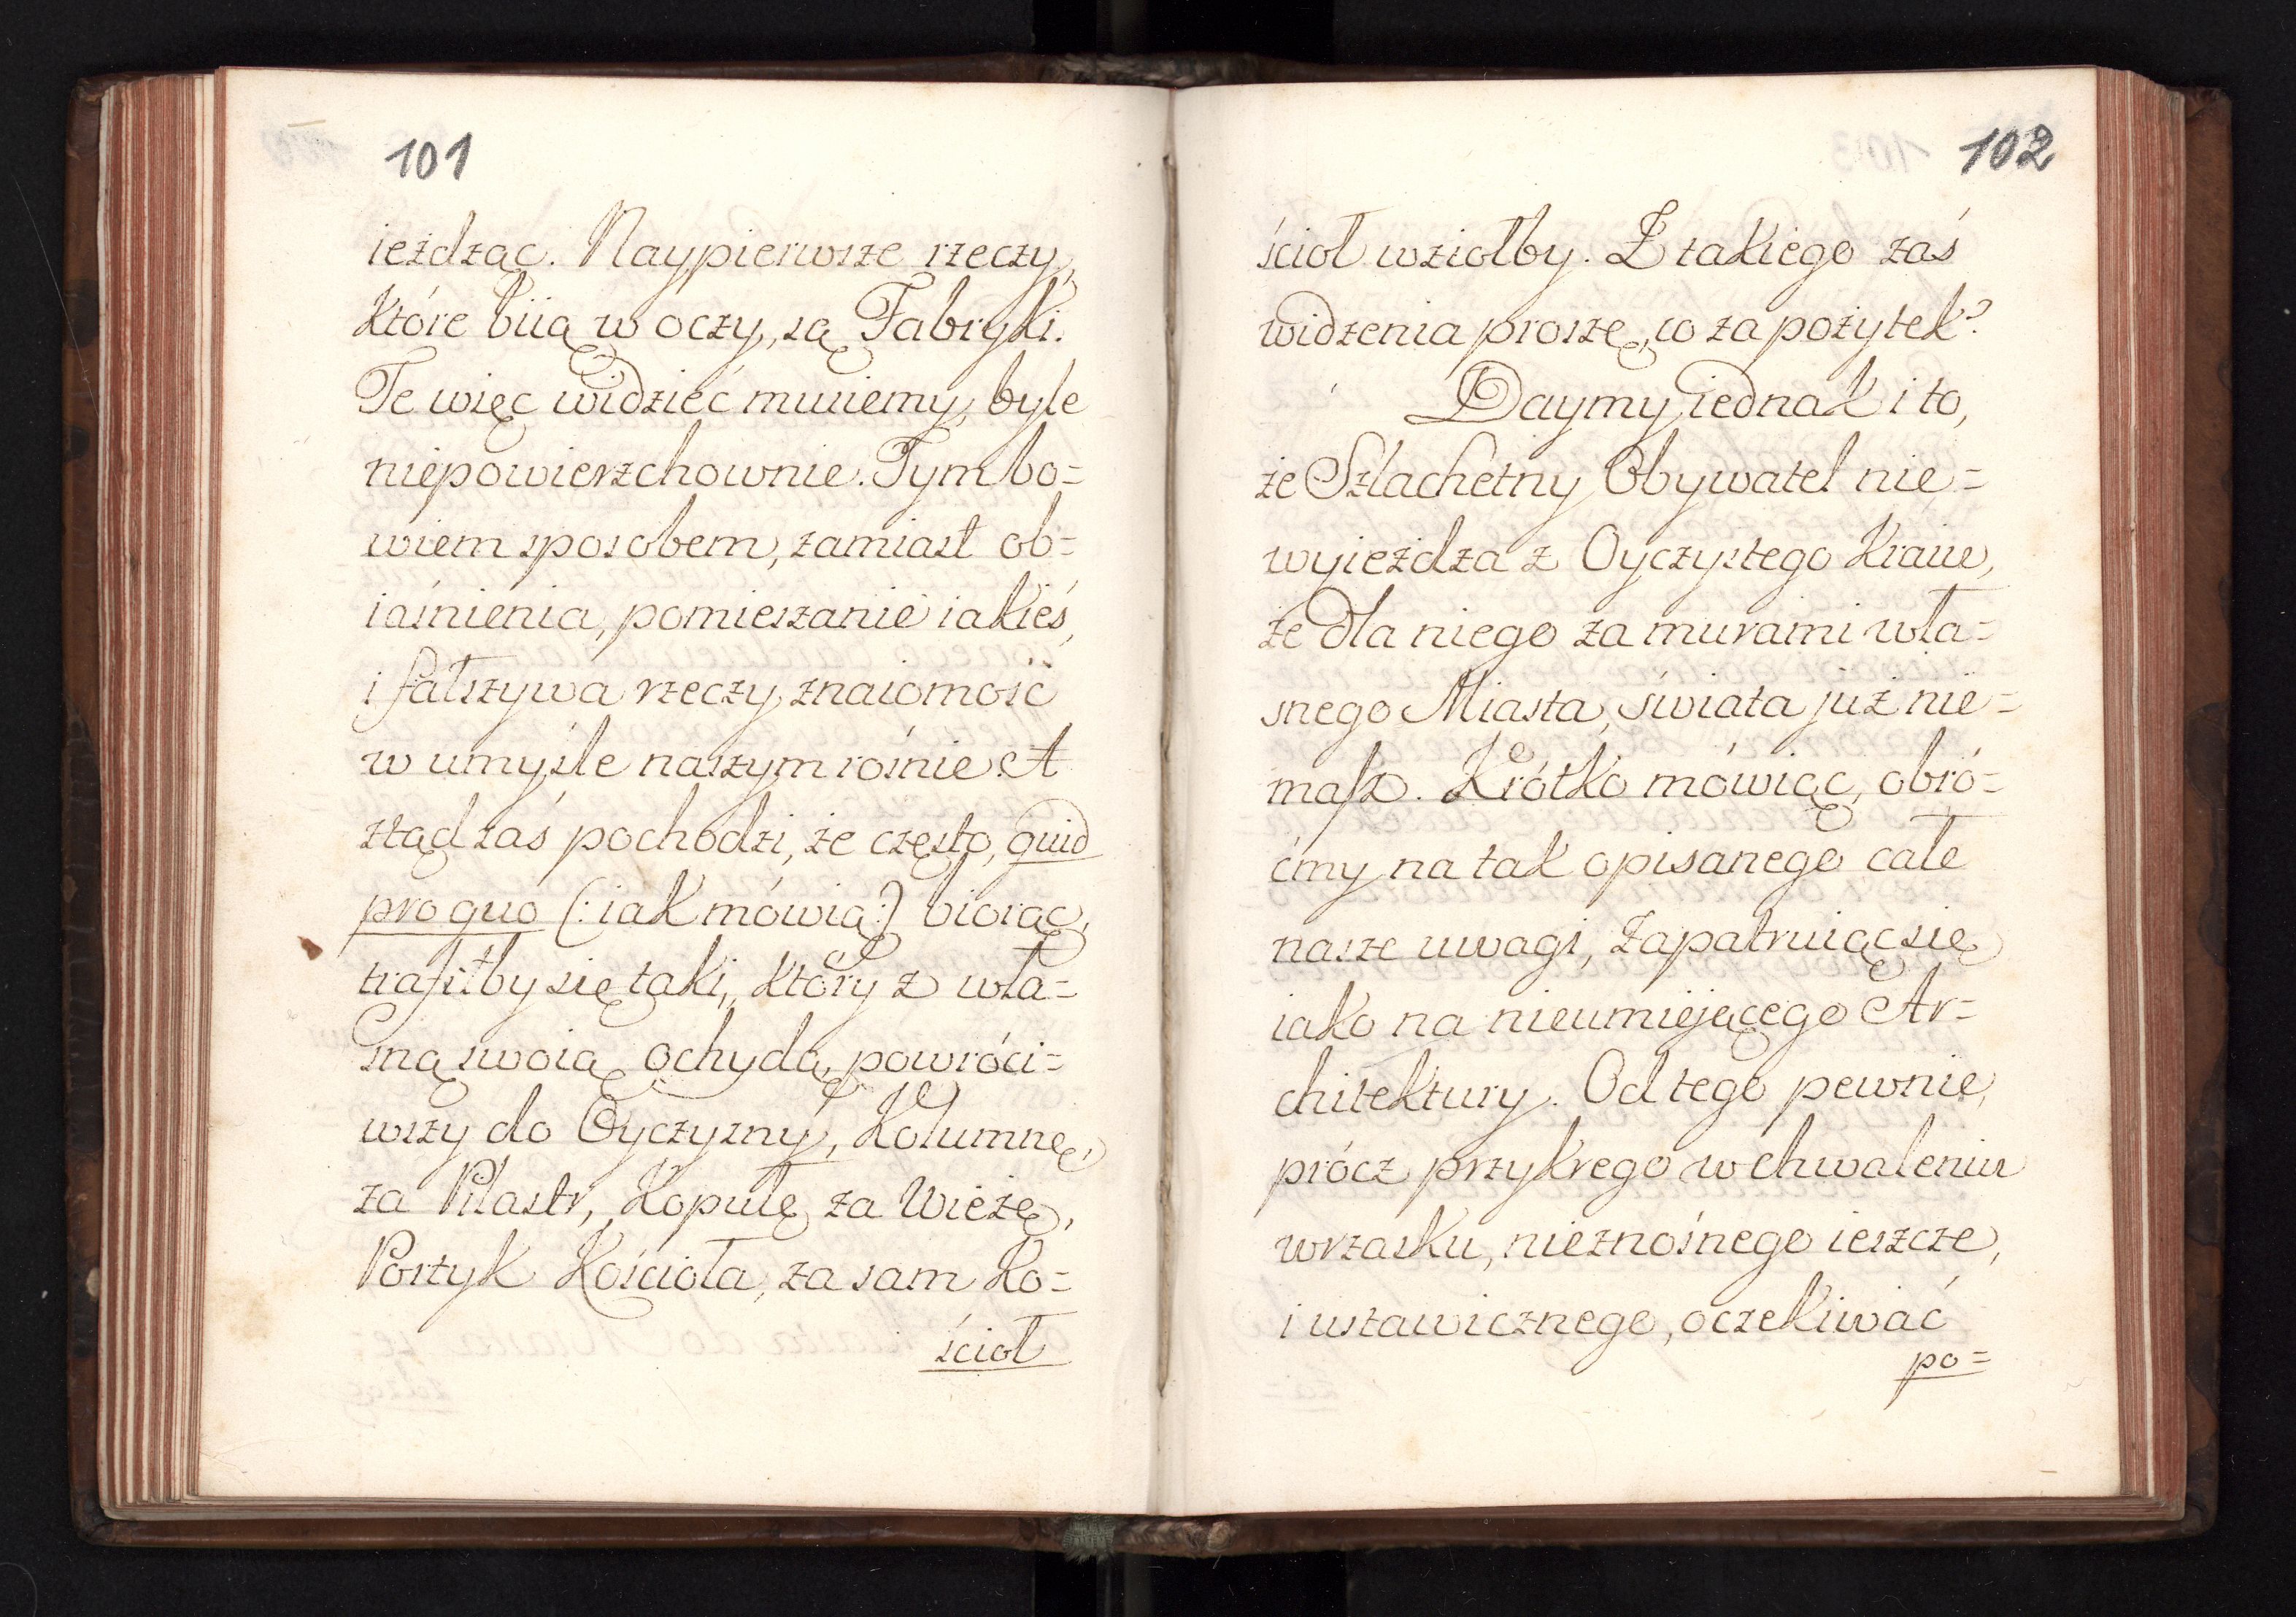 101
ieżdząc. Naypierwsze rzeczy,
które biią w oczy, są Fabryki.
Te więc widzieć musiemy, byle
niepowierzchownie. Tym bo=
wiem sposobem, zamiast ob=
iaśnienia, pomieszanie iakieś,
i fałszywa rzeczy znaiomość
w umyśle naszym rośnie. A
ztąd zaś pochodzi, że często, quid
pro quo (: iak mówią :) biorąc,
trafiłby się taki, który z wła=
sną swoią ochydą, powróci=
wszy do Oyczyzny, Kolumnę,
za Pilastr, Kopułę za Wieżę,
Portyk Kościoła, za sam Ko=
ścioł
102
ścioł wziołby. Z takiego zaś
widzenia proszę, co za pożytek?
Daymy iednak i to,
że Szlachetny Obywatel nie=
wyieżdza z Oyczystego Kraiu,
że dla niego za murami wła=
snego Miasta, świata już nie=
masz. Krótko mówiąc, obró=
ćmy na tak opisanego całe
nasze uwagi, zapatruiąc się
iako na nieumiejącego Ar=
chitektury. Od tego pewnie,
prócz przykrego w chwaleniu
wrzasku, nieznośnego ieszcze,
i ustawicznego, oczekiwać
po=